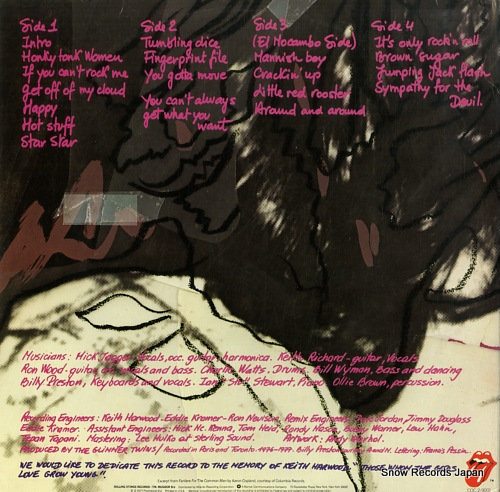 Side 1
Intro
Honky tonk Women
If you can't rock me
get off of my cloud
Happy
Hot stuff
Star Star
Side 2
Tumbling dice
Fingerprint file
You gotta move
You can't always
get what you
want
Side 3
(El Mocambo Side)
Mannish boy
Crackin' up
little red rooster
Around and around
Side 4
It's only rock'n roll
Brown Sugar
Jumping Jack flash
Sympathy for the
Devil.
Musicians: Mick Jagger-Vocals, acc. guitar, harmonica. Keith Richard-guitar, Vocals
Ron Wood-guitar, vocals and bass. Charlie Watts. Drums. Bill Wyman, bass and dancing
Billy Preston, Keyboards and vocals. Ian "Stu" Stewart, Piano. Ollie Brown, percussion.
Recording Engineers: Keith Harwood-Eddie Kramer-Ron Nevison. Remix Engineers: Jordan, Jimmy Douglass
Eddie Kramer. Assistant Engineers: Mick Mc.Kenna, Tom Heid, Randy Mason, Bobby Warner, Lew Hahn,
Tapani. Mastering: Lee Hulko at Sterling Sound. Artwork: Andy Warhol.
PRODUCED BY THE GLIMMER TWINS/Recorded in Paris and Toronto. 1976-1977. Billy Preston
WE WOULD LIKE TO DEDICATE THIS RECORD TO THE MEMORY OF KEITH HARWOOD. "THOSE WHOM THE GODS
LOVE GROW YOUNG."
Excerpt from Fanfare For The Common Man by Aaron Copland, courtesy of Columbia Records.
ROLLING STONES RECORDS
Snow Records Japan